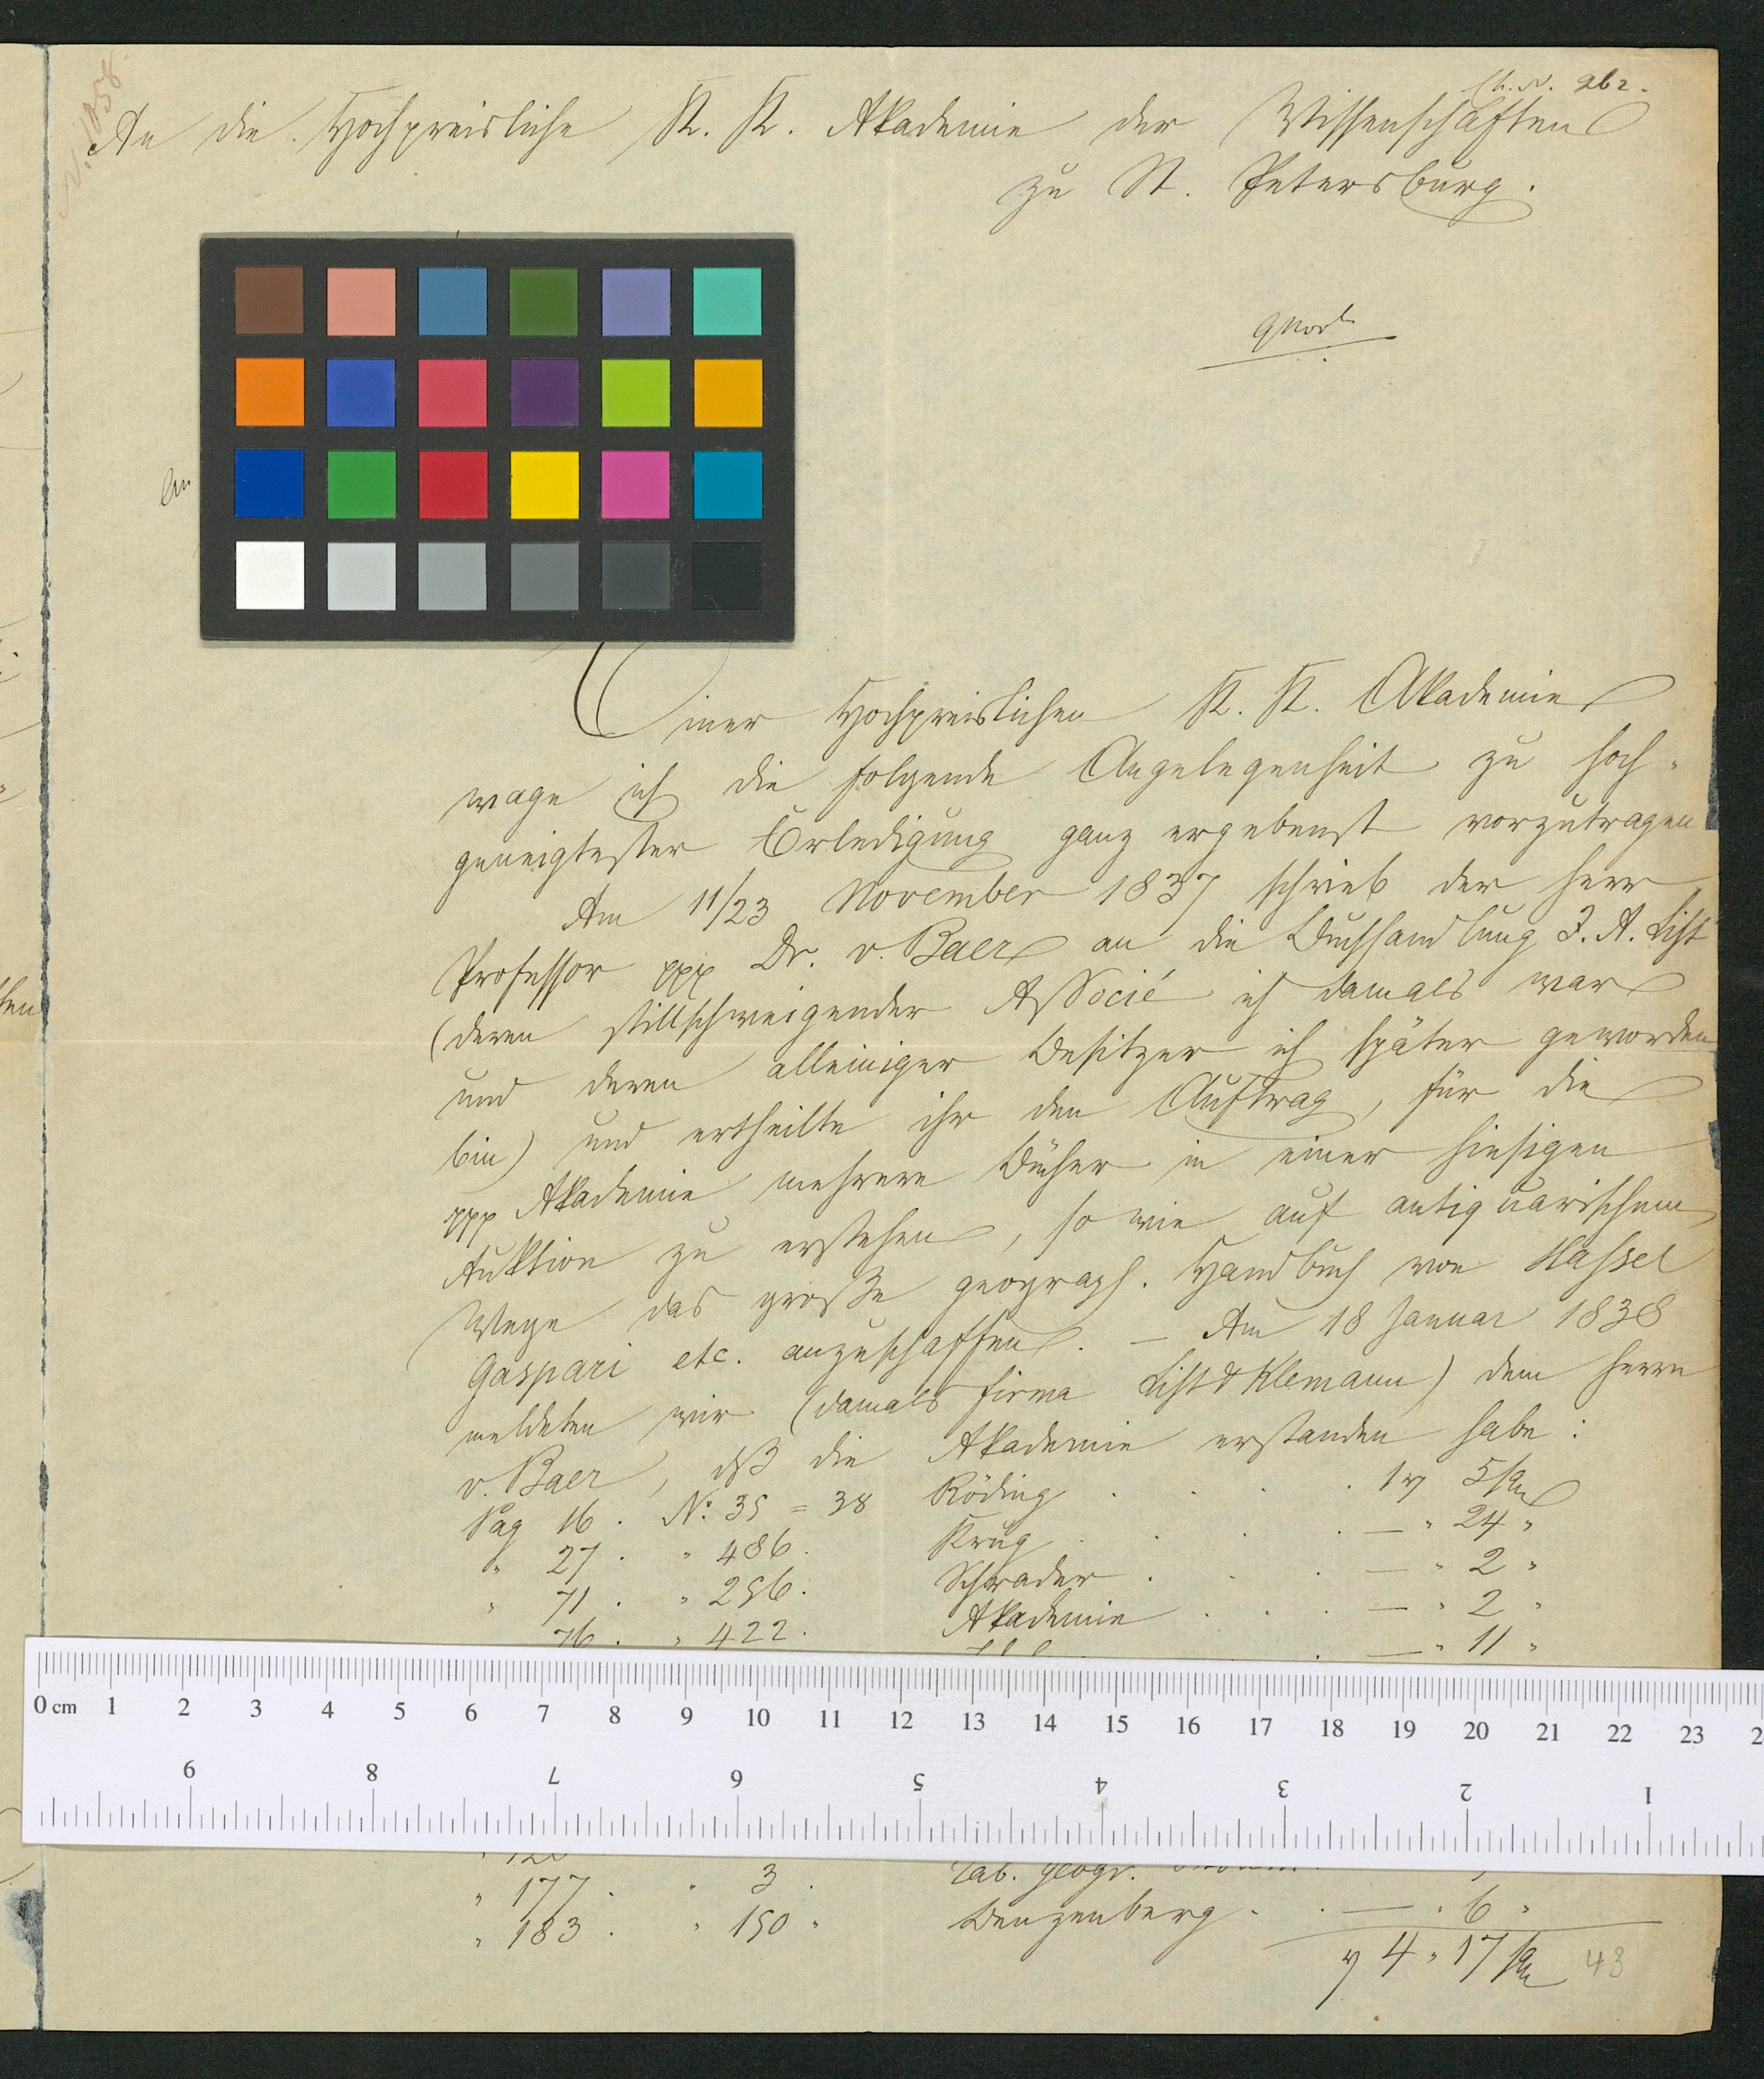 N. 1058.
262.
An die Hochpreisliche K. K. Akademie der Wissenschaften
zu St. Petersburg.
Einer Hochpreislichen K. K. Akademie
wage ich die folgende Angelegenheit zu hoch-
geneigtester Erledigung ganz ergebenst vorzutragen
Am 11/23 November 1837 schrieb der Herr
Professor ppp Dr. v. Baer an die Buchhandlung F. A. List
(deren stillschweigender Associé ich damals war
und deren alleiniger Besitzer ich später geworden
bin) und ertheilte ihr den Auftrag, für die
ppp Akademie mehrere Bücher in einer hiesigen
Auktion zu erstehen, so wie auf antiquarischem
Wege das große geograph. Handbuch von Hassel
Gaspari etc. anzuschaffen. — Am 18 Januar 1838
meldeten wir (damals Firma List & Klemann) dem Herrn
v. Baer, dß die Akademie erstanden habe:
Pag 16. No: 35 = 38 Röding . . . 1 5
" 27. " 486. Krug . . . — " 24 "
" 71. " 256. Schrader . . . — " 2 "
76. " 422. Akademie . . . — " 2 "
— " 11 "
" 177. " 3. Tab. geogr.
" 183. " 150 " Benzenberg . . — " 6 "
4 " 17 43
0 cm 1 2 3 4 5 6 7 8 9 10 11 12 13 14 15 16 17 18 19 20 21 22 23 2
9 8 7 6 5 4 3 2 1